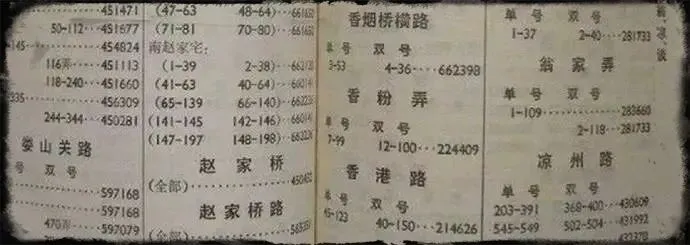 451471
50-112···451677
154···454824
116弄···451113
118-240···451660
335···456309
244-344···450281
娄山关路
号 双号
···597168
···597168
470弄···597079
(47-63 48-64)···661650
(71-81 70-80)···661650
南赵家宅:
(1-39 2-38)···
(41-63 40-64)···
(65-139 66-140)···
(141-145 142-146)···
(147-197 148-198)···
赵家桥
(全部)···
赵家桥路
(全部)···
香烟桥横路
单号 双号
3-53 4-36···662398
香粉弄
单号 双号
7-99 12-100···224409
香港路
单号 双号
45-123 40-150···214626
单号 双号
1-37 2-40···281733
翁家弄
单号 双号
1-109···283660
2-118···281733
凉州路
单号 双号
203-391 368-400···430609
545-549 502-504···431992